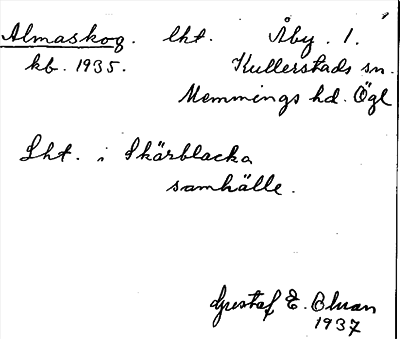 Almaskog. lht. Åby. 1.
kb. 1935. Kullerstads sn.
Memmings hd. Ögl
Lht. i Skärblacka
samhälle.
Gustaf E. Olman
1937